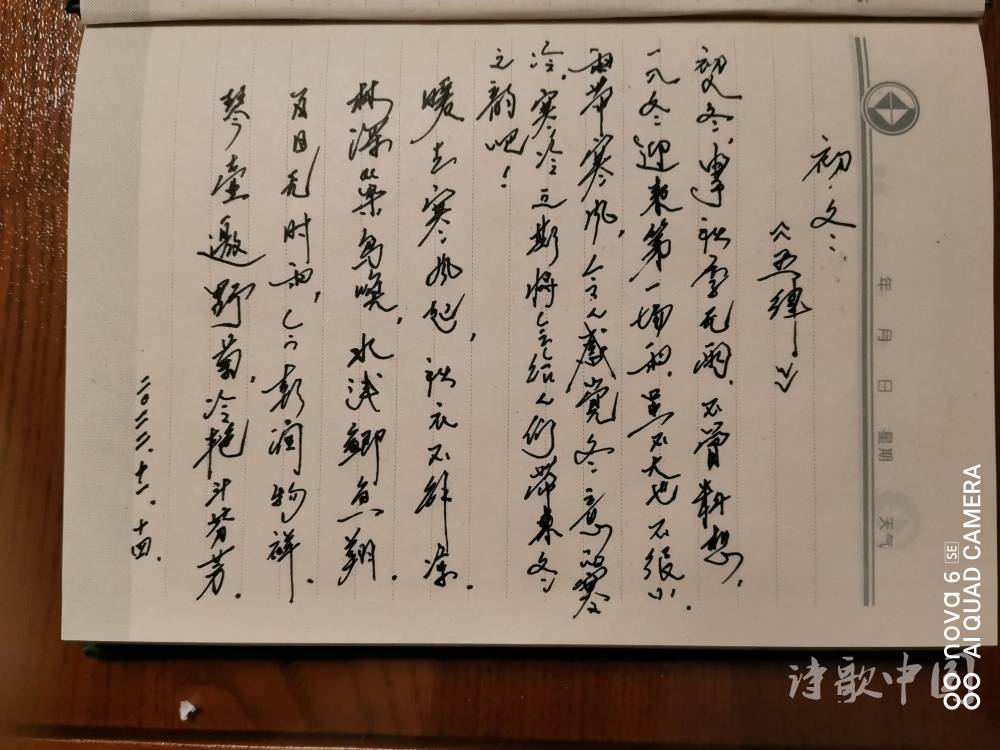 初冬
《五律》
初冬,
秋季无雨,不曾料想,
一入冬迎来第一场雨,虽不大也不很小.
雨带寒风,令人感觉冬意的寒
冷,寒冷将会给人们带来冬
之韵吧!
暖去寒风起,秋衣不解凉.
林深巢鸟唤,水浅鲫鱼翔.
百日无时雨,今六彰润物祥.
琴童邀野菊,冷艳斗芳芳.
二〇二二.十一.十四.
年 月 日 星期 天气
nova 6 SE
AI QUAD CAMERA
诗歌中国